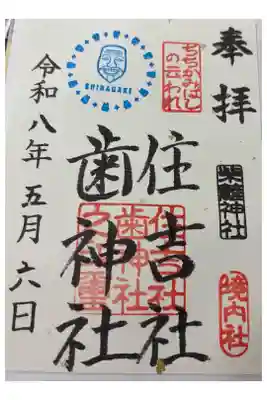 奉拝
ちちかみばし
の云われ
柴籬神社
境内社
住吉社
歯神社
住吉社
歯神社
SHIBAGAKI
令和八年五月六日